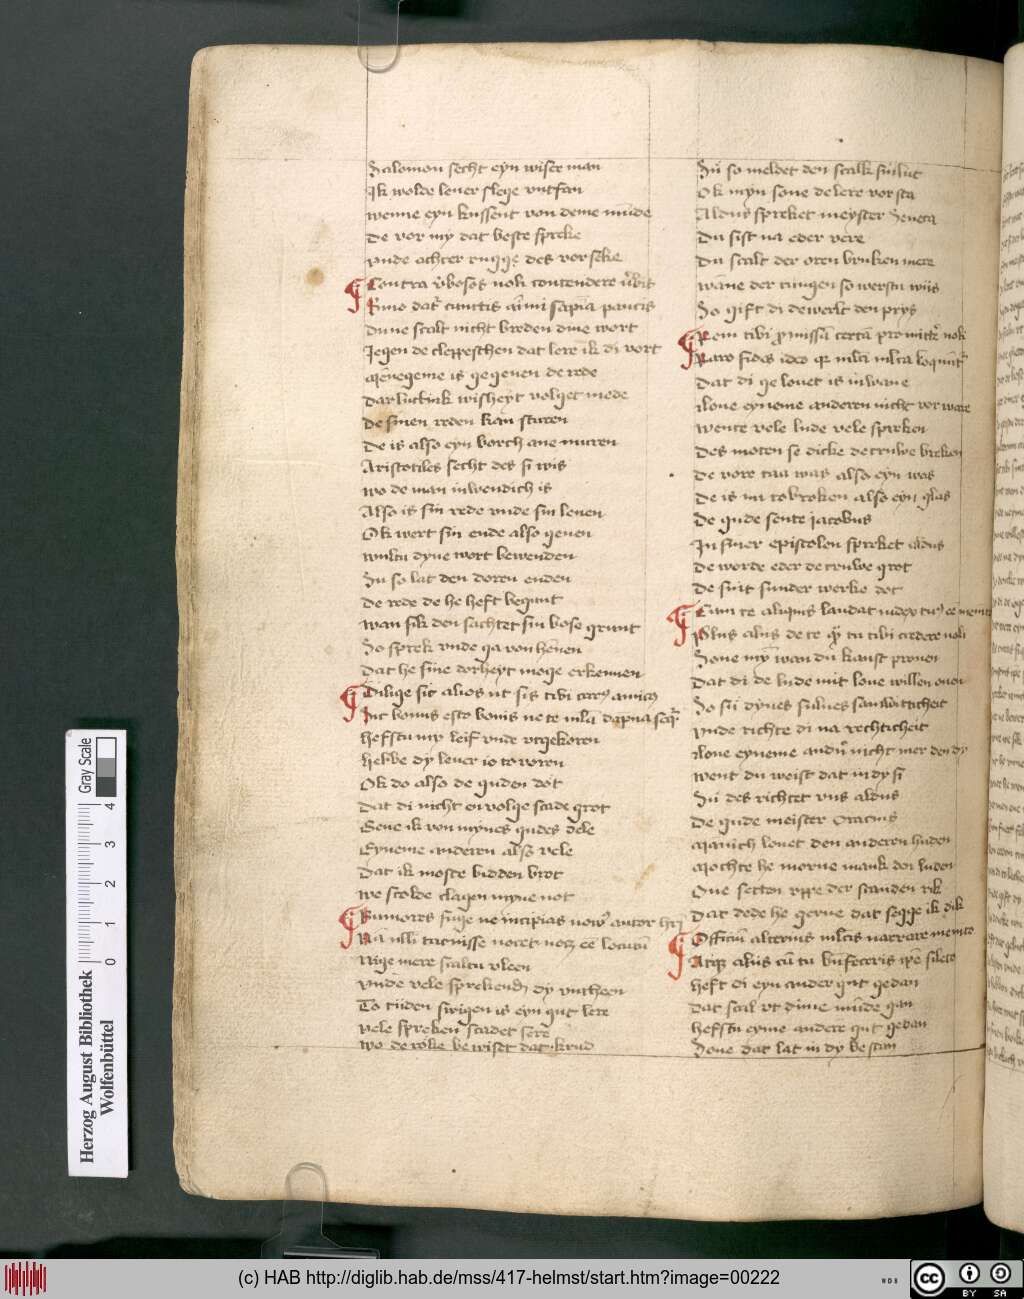 Salomon secht eyn wiser man
Ik wolde leuer slege vntfan
wenne eyn kussent von deme munde
De vor my dat beste spreke
vnde achter rugge des vorseke
Contra v̄bosos noli contendere v̄bis
Sermo dat᷒ cunctis aīmi sapīa paucis
Du ne scalt nicht breden dine wort
Jegen de cleppeschen dat lere ik di vort
Mēnegeme is gegeuen de rede
Dar luttink wisheyt volget mede
De sinen reden kan sturen
De is also eyn borch ane muren
Aristotiles secht des si wis
wo de man inwendich is
Also is sin rede vnde sin leuen
Ok wert sin ende also geuen
wultu dyne wort bewenden
Su so lat den doren enden
De rede de he heft begunt
wan sik den sachtet sin bose grunt
So sprek vnde ga von hennen
Dat he sine dorheyt moge erkennen
Dilige sic alios ut sis tibi carus amicus
Sic bonis esto bonis ne te mala dapna seqr̄
Hefstu my leif vnde vtgekoren
Hebbe dy leuer io to voren
Ok do also de guden dot
Dat di nicht en volge scade grot
Geue ik von mynes gudes dele
Eyneme anderen also vele
Dat ik moste bidden brot
we scolde clagen myne not
Rumores fuge ne incipias nouus auctor
Nā nulli tacuisse nocet nocet eē locutū
Nyge mere scaltu vleen
vnde vele sprekend dy vntheen
To tiiden swigen is eyn gut lere
vele spreken scadet sere
wo de roke bewiset dat krud
Su so meldet den scalk sin lut
Ok myn sone de lere vorsta
Aldus spreket meyster Seneca
Du sist na eder vere
Du scalt der oren bruken mere
wanne der tungen so werstu wiis
So gift di de werlt den prys
Rem tibi promissā certā promitte᷒ noli
Raro fides ideo qr multi multa loquunt᷒
Dat di gelouet is in wane
Loue eyneme anderen nicht vorware
wente vele lude vele spreken
Des moten se dicke de truwe breken
De vore was also eyn was
De is nu tobroken also eyn glas
De gude sente Jacobus
In siner epistolen spreket aldus
De worde eder de truwe grot
De sint sunder werke dot
Cum te aliquis laudat iudex tuus eē memento
Plus aliis de te q̄ tu tibi credere noli
Sone my wan du kanst prouen
Dat di de lude mit loue willen ouen
So sii dynes sulues
vnde richte di na rechticheit
Loue eyneme andn̄ nicht mer den dy
went du weist dat in dy si
Su des richtet vns aldus
De gude meister Oracius
Manich louet den anderen huden
Mochte he morne mank den luden
One setten vppe der scanden rik
Dat dede he gerne dat segge ik dik
Officiū alterius multis narrare memento
Atque aliis cū tu bn̄feceris ipē sileto
Heft di eyn ander gut gedan
Dat scal vt dime munde gan
Hefstu eyme andere gut gedan
Sone dat lat in dy bestan
Herzog August Bibliothek
Wolfenbüttel
0 1 2 3 4
Gray Scale
(c) HAB http://diglib.hab.de/mss/417-helmst/start.htm?image=00222
WDB
cc BY SA